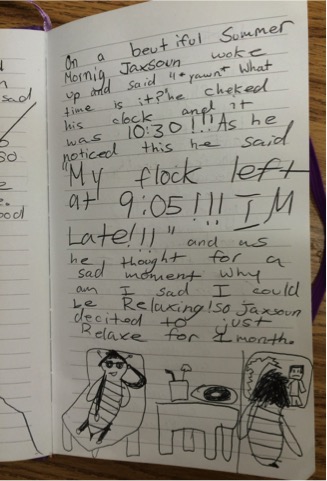 sad
so
e
e.
ood
On a beutiful Summer
Mornig Jaxsoun woke
up and said "*yawn* What
time is it?"he cheked
his clock and it
was 10:30!!!As he
noticed this he said
"My flock left
at 9:05!!! IM
Late!!!" and as
he thought for a
sad moment why
am I sad I could
be Relaxing!so Jaxsoun
decited to just
Relaxe for 1 month.